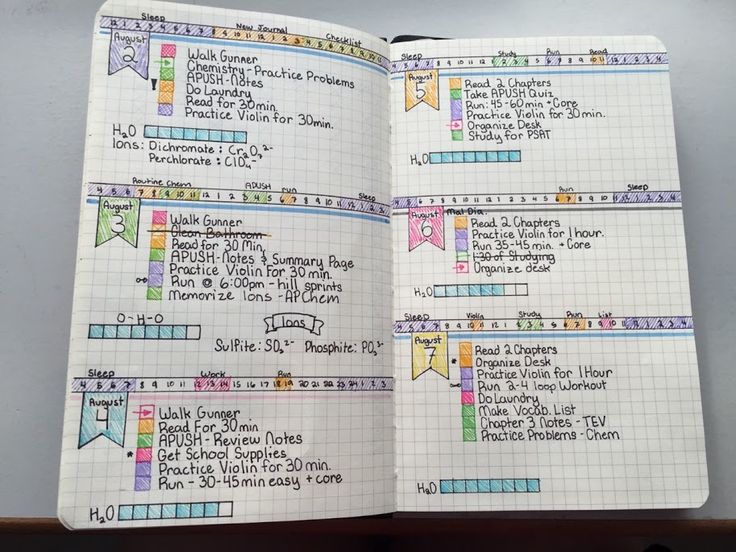 Sleep New Journal Checklist
August 2
Walk Gunner
Chemistry - Practice Problems
APUSH - Notes
! Do Laundry
Read for 30 min.
Practice Violin for 30 min.
H2O
Ions: Dichromate: Cr2O7 2-
Perchlorate: ClO4 -
Routine Chem APUSH run Sleep
4 5 6 7 8 9 10 11 12 1 2 3 4 5 6 7 8 9 10 11 12 1 2 3
August 3
Walk Gunner
Clean Bathroom
Read for 30 Min.
APUSH - Notes & Summary Page
Practice Violin for 30 min.
Run @ 6:00pm - hill sprints
Memorize Ions - AP Chem
O-H-O
Ions
Sulfite: SO3 2- Phosphite: PO3 3-
Sleep Work Run
4 5 6 7 8 9 10 11 12 13 14 15 16 17 18 19 20 21 22 23 24 1 2 3
August 4
Walk Gunner
Read For 30 min
APUSH - Review Notes
* Get School Supplies
Practice Violin for 30 min.
Run - 30-45 min easy + core
H2O
Sleep Study Run Read
4 5 6 7 8 9 10 11 12 1 2 3 4 5 6 7 8 9 10 11 12 1 2 3
August 5
Read 2 Chapters
Take APUSH Quiz
Run: 45-60 min + Core
Practice Violin for 30 min.
Organize Desk
Study for PSAT
H2O
Run Sleep
4 5 6 7 8 9 10 11 12 1 2 3 4 5 6 7 8 9 10 11 12 1 2 3
August 6
Read 2 Chapters
Practice Violin for 1 hour.
Run 35-45 min. + Core
1:30 of Studying
Organize desk
H2O
Sleep Violin Study Run List
4 5 6 7 8 9 10 11 12 1 2 3 4 5 6 7 8 9 10 11 12 1 2 3
August 7
Read 2 Chapters
* Organize Desk
Practice Violin for 1 Hour
Run 2-4 loop Workout
Do Laundry
Make Vocab. List
Chapter 3 Notes - TEV
Practice Problems - Chem
H2O